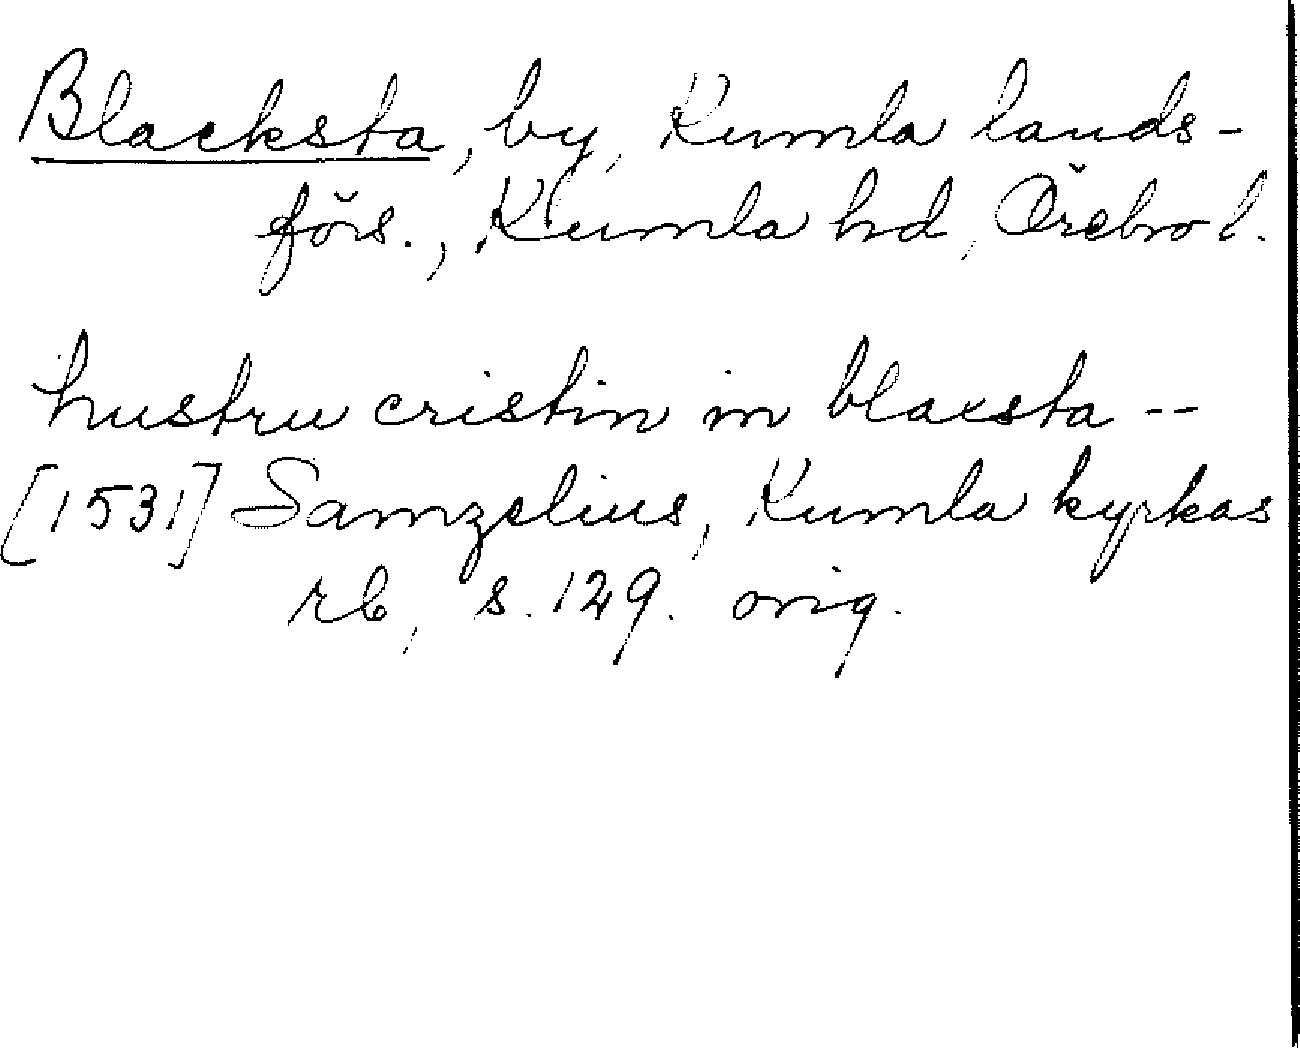 Blacksta, by, Kumla lands-
förs., Kumla hd, Örebro l.
hustru cristin in blacsta --
[1531] Samzelius, Kumla kyrkas
rb, s. 129. orig.